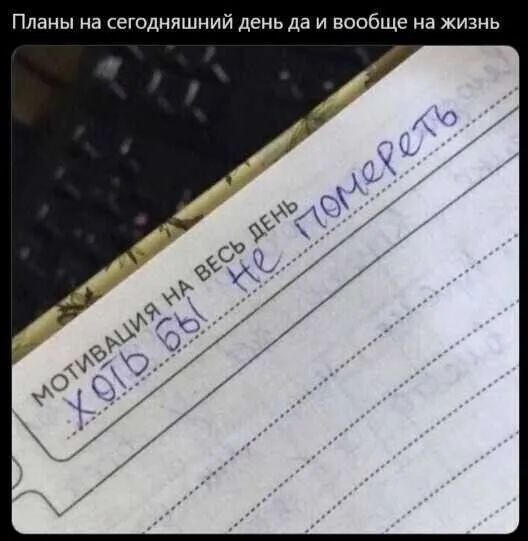 Планы на сегодняшний день да и вообще на жизнь
МОТИВАЦИЯ НА ВЕСЬ ДЕНЬ
ХОТЬ БЫ НЕ ПОМЕРЕТЬ